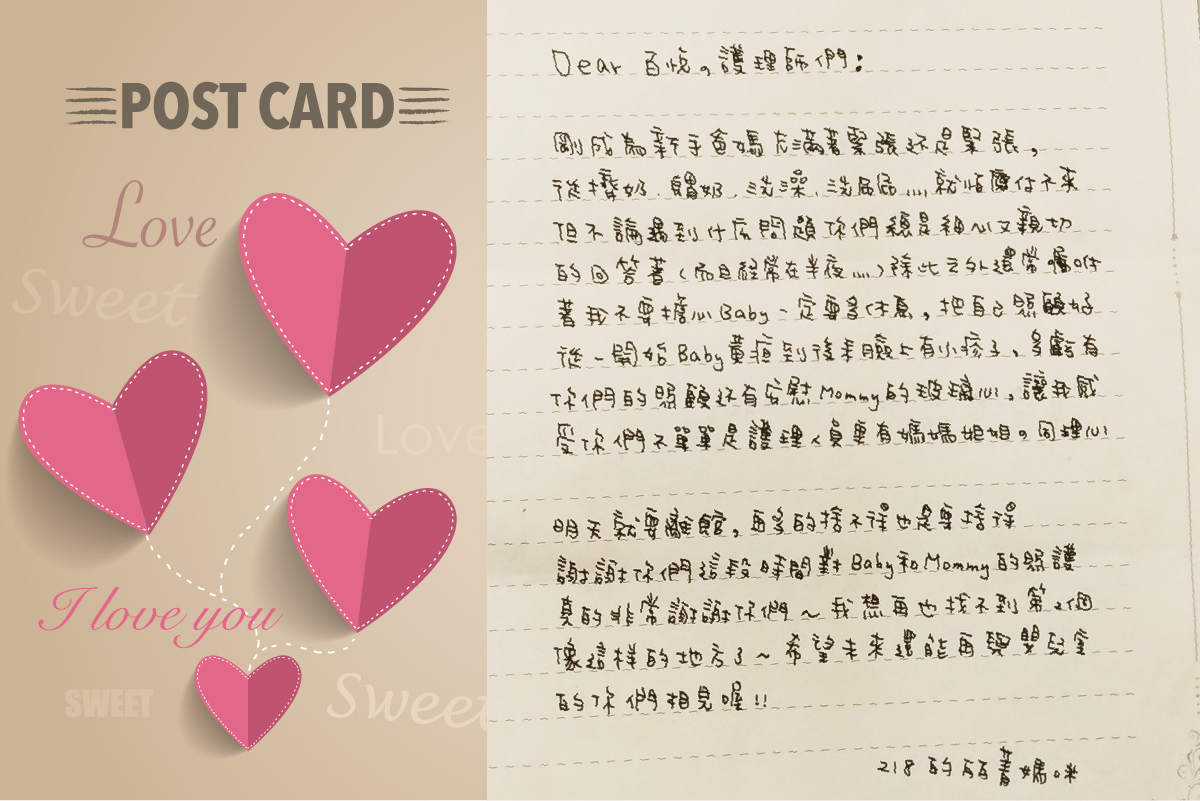 POST CARD
Love
Sweet
Love
I love you
SWEET
Sweet
Dear 百悅。護理師們:
剛成為新手爸媽充滿著緊張还是緊張,
從擠奶、餵奶、洗澡、洗屁屁....就
但不論遇到什広問題你們總是細心又親切
的回答著(而且經常在半夜....)除此之外還常囑咐
著我不要擔心Baby一定要多休息,把自己照顧好
從一開始Baby黃疸到後來臉上有小疹子,多虧有
你們的照顧还有安慰Mommy的玻璃心,讓我感
受你們不單單是護理人員更有媽媽姐姐。同理心
明天就要離館,再多的捨不得也是要捨得
謝謝你們這段時間對Baby和Mommy的照護
真的非常謝謝你們～我想再也找不到第2個
像這樣的地方了～希望未來還能再跟嬰兒室
的你們相見喔!!
218的 菁媽咪